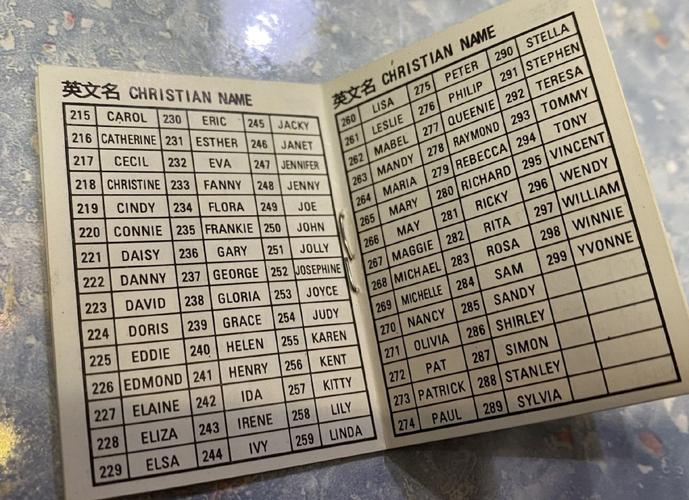 英文名 CHRISTIAN NAME
215 CAROL 230 ERIC 245 JACKY
216 CATHERINE 231 ESTHER 246 JANET
217 CECIL 232 EVA 247 JENNIFER
218 CHRISTINE 233 FANNY 248 JENNY
219 CINDY 234 FLORA 249 JOE
220 CONNIE 235 FRANKIE 250 JOHN
221 DAISY 236 GARY 251 JOLLY
222 DANNY 237 GEORGE 252 JOSEPHINE
223 DAVID 238 GLORIA 253 JOYCE
224 DORIS 239 GRACE 254 JUDY
225 EDDIE 240 HELEN 255 KAREN
226 EDMOND 241 HENRY 256 KENT
227 ELAINE 242 IDA 257 KITTY
228 ELIZA 243 IRENE 258 LILY
229 ELSA 244 IVY 259 LINDA
英文名 CHRISTIAN NAME
260 LISA 275 PETER 290 STELLA
261 LESLIE 276 PHILIP 291 STEPHEN
262 MABEL 277 QUEENIE 292 TERESA
263 MANDY 278 RAYMOND 293 TOMMY
264 MARIA 279 REBECCA 294 TONY
265 MARY 280 RICHARD 295 VINCENT
266 MAY 281 RICKY 296 WENDY
267 MAGGIE 282 RITA 297 WILLIAM
268 MICHAEL 283 ROSA 298 WINNIE
269 MICHELLE 284 SAM 299 YVONNE
270 NANCY 285 SANDY
271 OLIVIA 286 SHIRLEY
272 PAT 287 SIMON
273 PATRICK 288 STANLEY
274 PAUL 289 SYLVIA